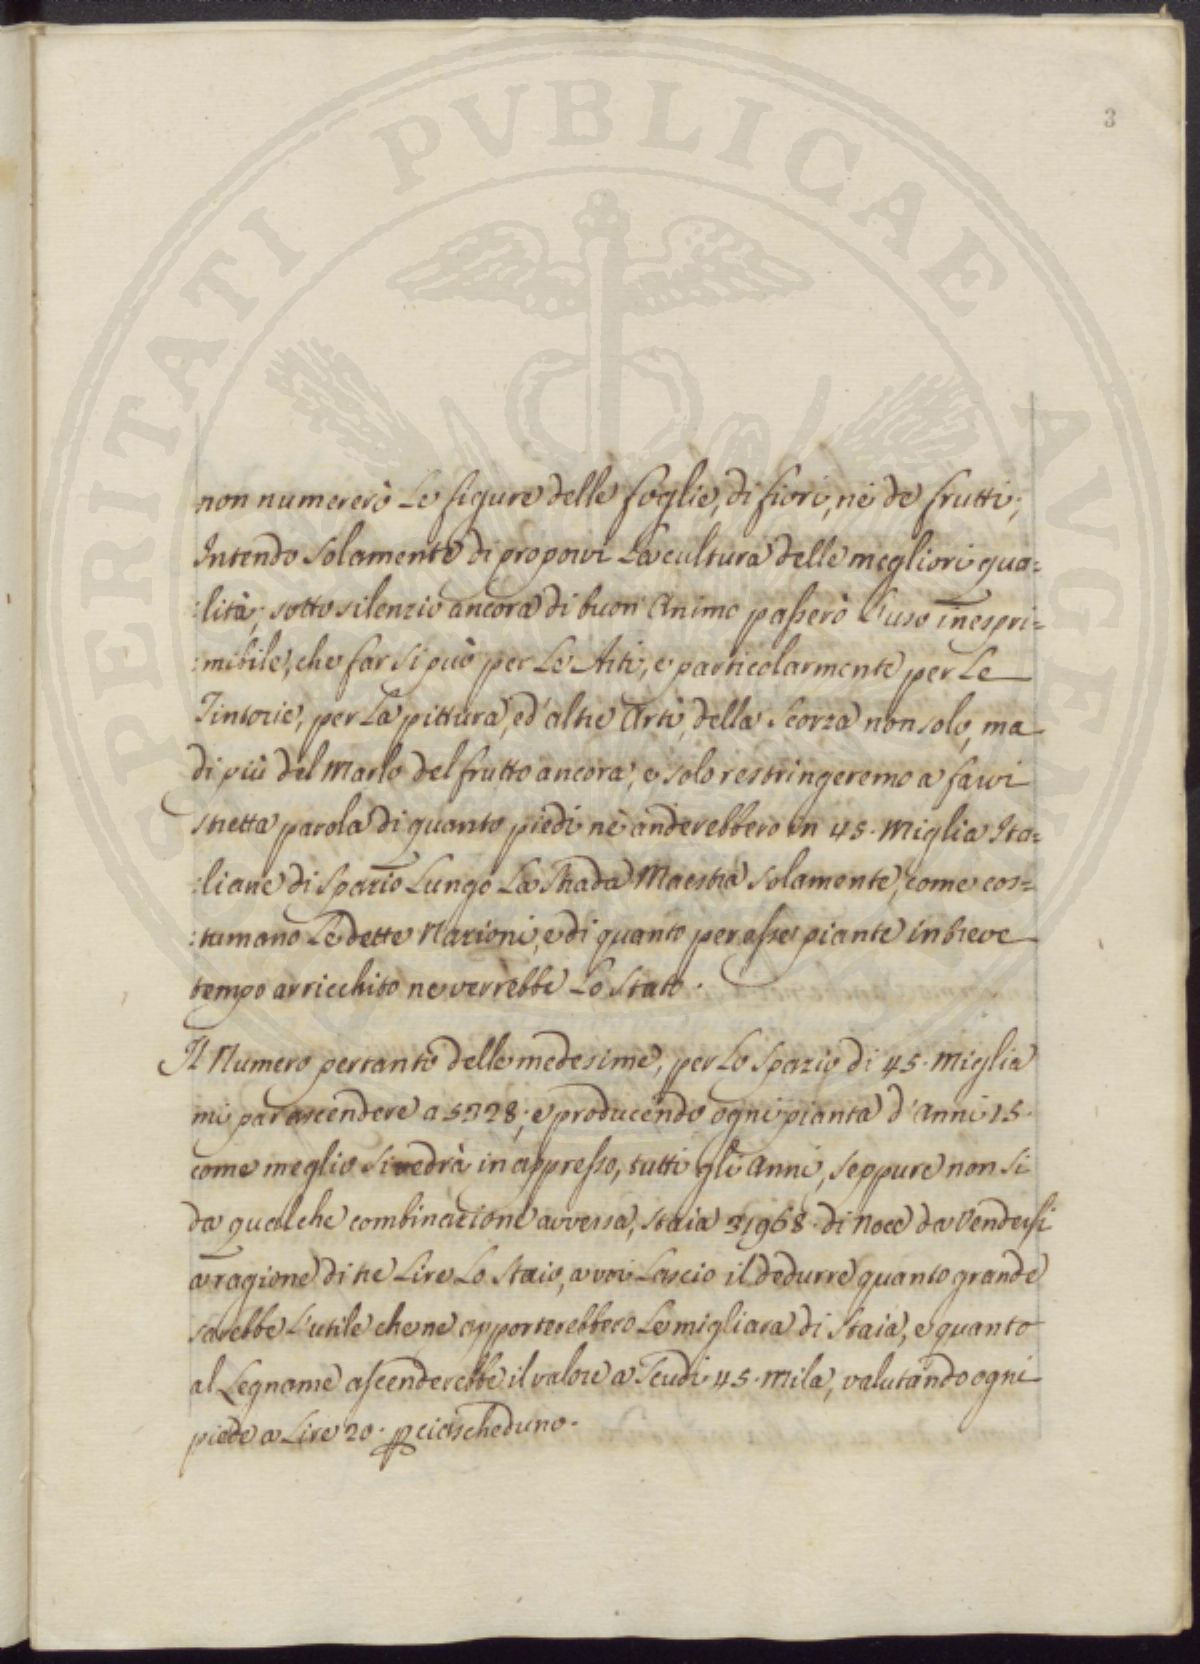 PROSPERITATI PVBLICAE AVGENDAE
3
non numererò Le figure delle foglie, di fiori, né de frutti;
Intendo solamente di proporvi La cultura delle megliori qua=
:lità; sotto silenzio ancora di buon Animo passerò L'uso inespri=
:mibile, che far si può per Le Arti, e particolarmente per Le
Tintorie, per La pittura, ed' altre Arti, della Scorza non solo, ma
di più del Marlo del frutto ancora; e solo restringeremo a farvi
stretta parola di quanto piedi né anderebbero in 45. Miglia Ita=
:liane di Spazio Lungo La Strada Maestra solamente, come cos=
:tumano Le dette Nazioni, e di quanto per esse piante in breve
tempo arricchito ne verrebbe Lo Stato.
Il Numero pertanto delle medesime, per Lo Spazio di 45. Miglia
mi par ascendere a 5328; e producendo ogni pianta d'Anni 15.
come meglio si vedrà in appresso, tutti gli Anni, seppure non si
da qualche combinazione avversa, Staia 31968. di Noce da Vendersi
a ragione di tre Lire Lo Staio, a voi Lascio il dedurre quanto grande
sarebbe L'utile che ne apporterebbero Le migliara di Staia, e quanto
al Legname ascenderebbe il valore a Scudi 45. Mila, valutando ogni
piede a Lire 20. per ciascheduno.